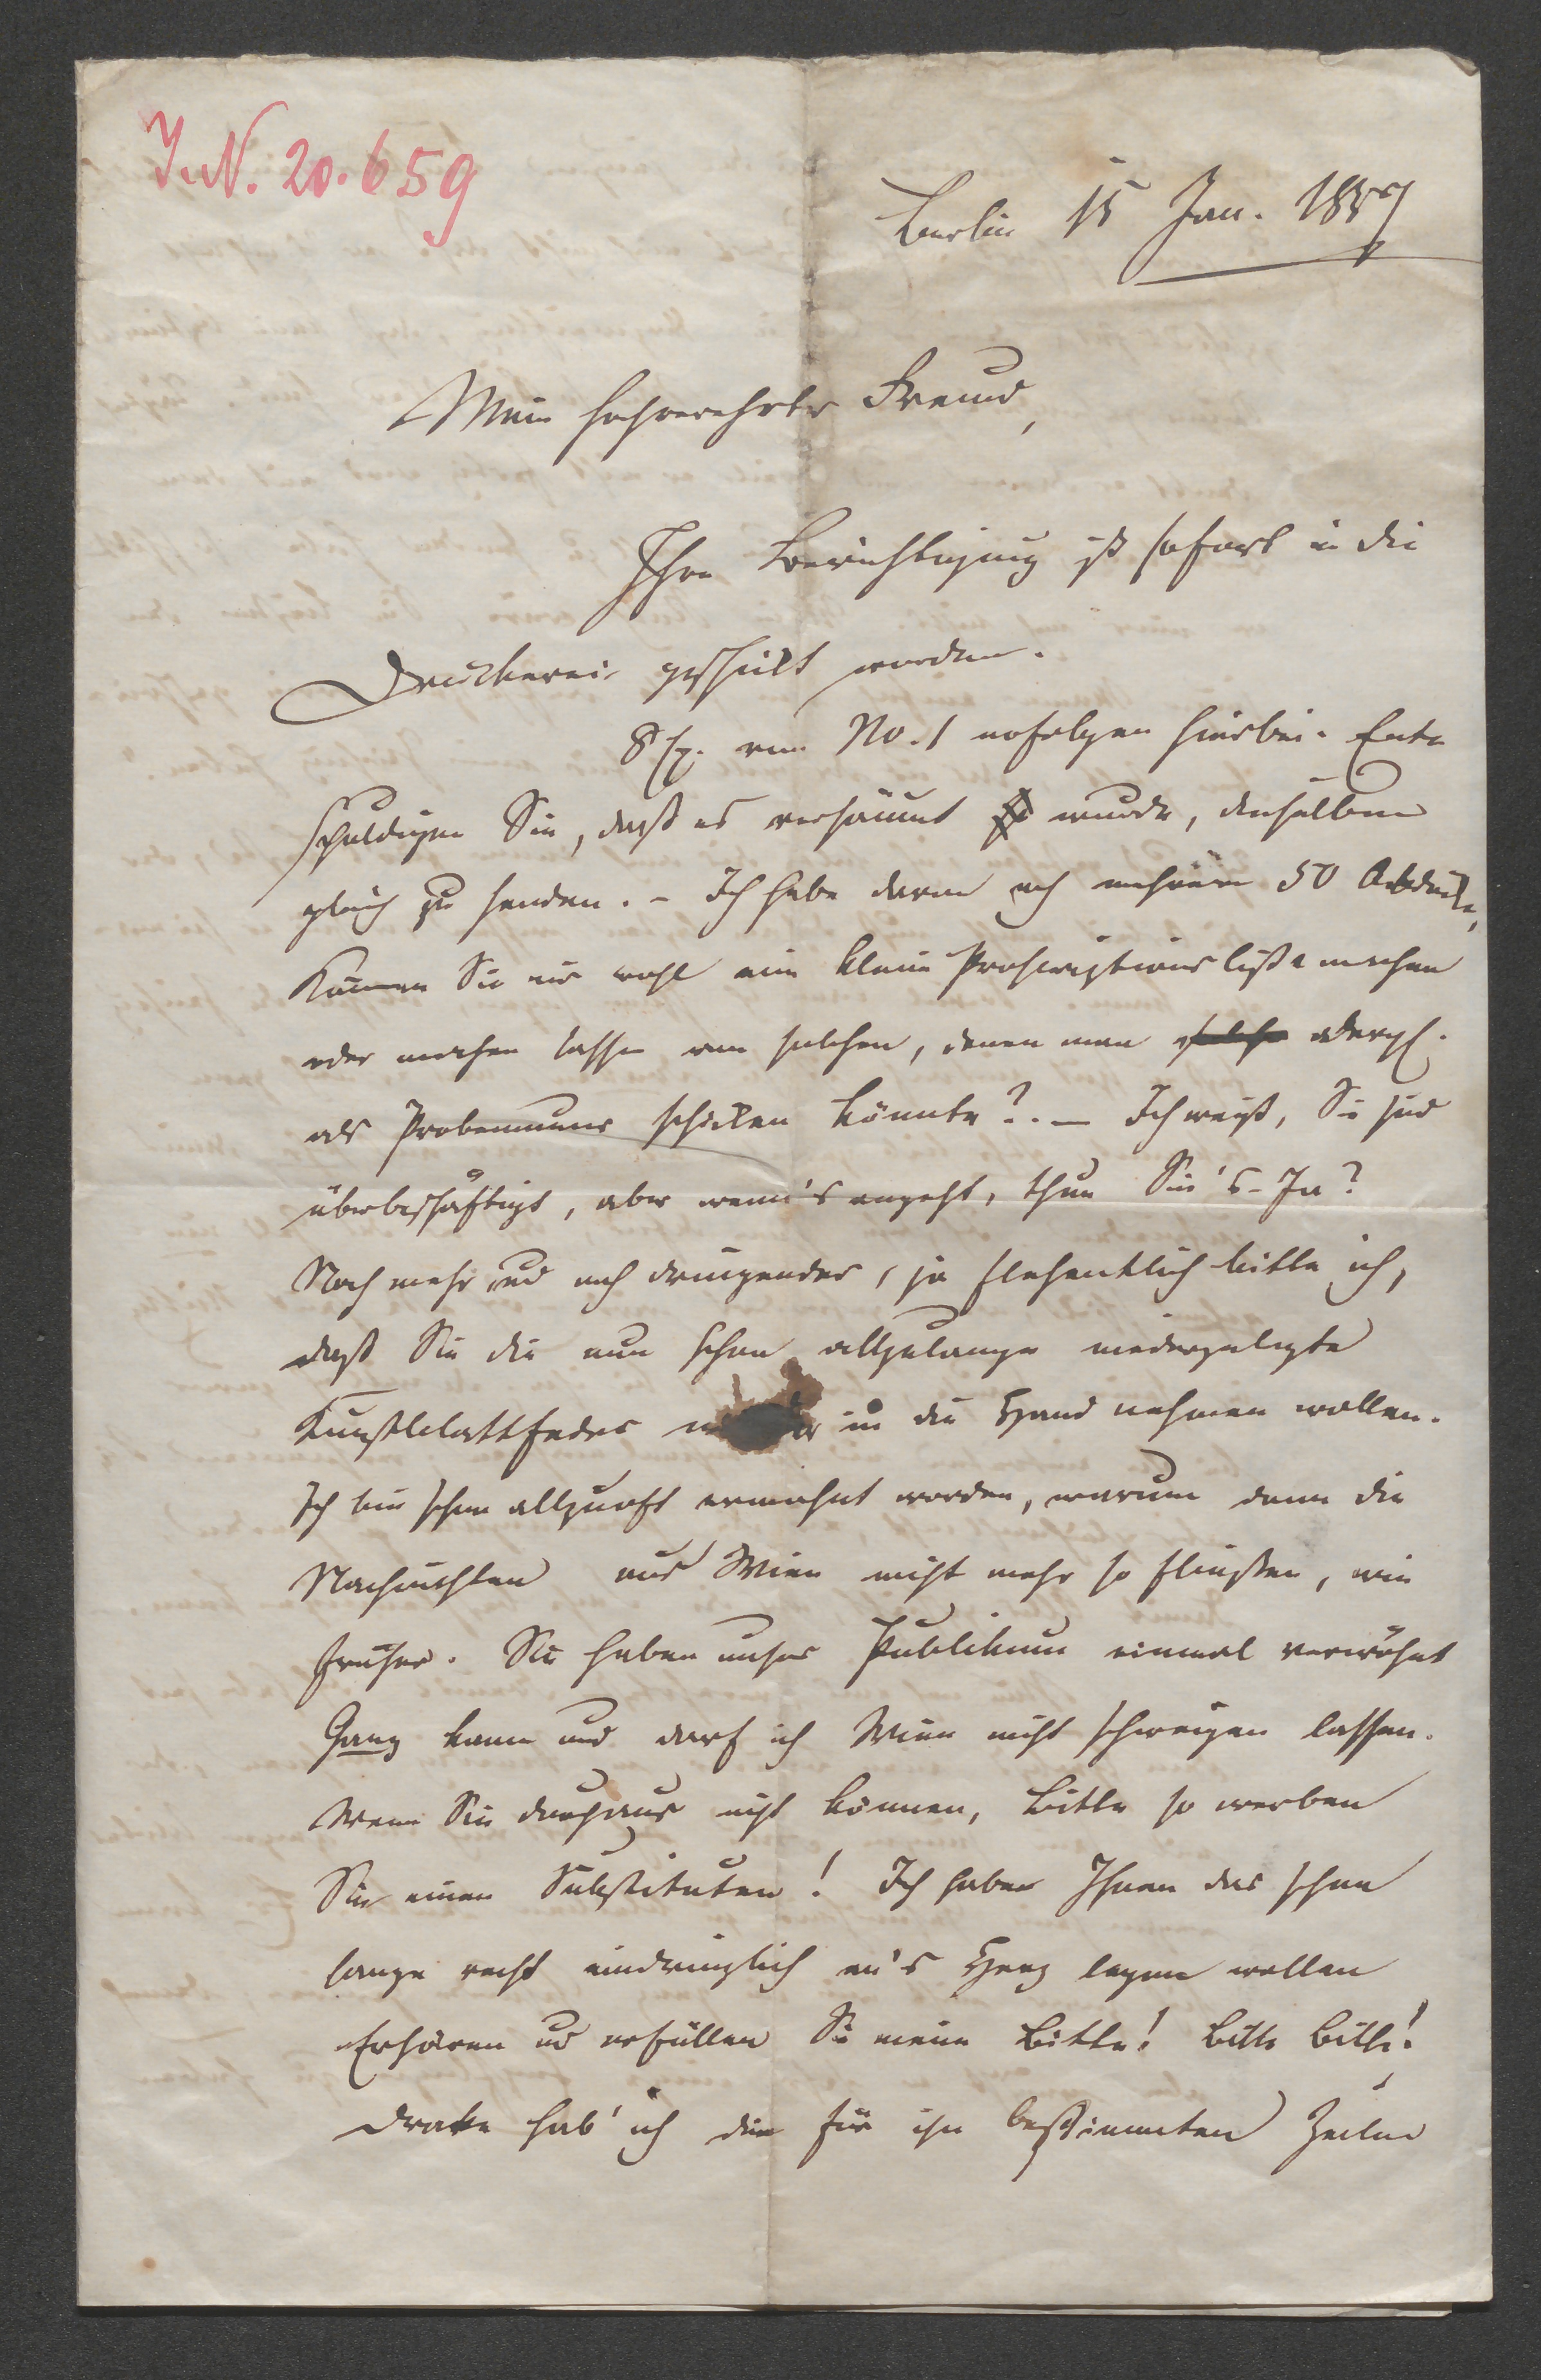 I.N. 20.659
Berlin 15 Jan. 1857
Mein hochverehrter Freund,
Ihre Berichtigung ist sofort in die
Druckerei geschickt worden.
8 Ex. von No. 1 erfolgen hierbei. Ent-
schuldigen Sie, daß es versäumt wurde, dieselben
gleich zu senden. – Ich habe deren noch mehrere 50 Abdrücke,
Können Sie mir wohl eine kleine Proscriptionsliste machen
oder machen lassen von solchen, denen man dergl.
als Probenummer schicken könnte? – Ich weiß, Sie sind
überbeschäftigt, aber wenn's angeht, thun Sie's. Ja?
Noch mehr und noch dringender, ja flehentlich bitte ich,
daß Sie die nun schon allzulange niedergelegte
Kunstblattfeder wieder in die Hand nehmen wollen.
Ich bin schon allzuoft ermahnt worden, warum denn die
Nachrichten aus Wien nicht mehr so fließen, wie
früher. Sie haben unser Publikum einmal verwöhnt
Ganz kann und darf ich Wien nicht schweigen lassen.
Wenn Sie durchaus nicht können, bitte so werben
Sie einen Substituten! Ich habe Ihnen das schon
lange recht eindringlich an's Herz legen wollen
Erhören und erfüllen Sie meine Bitte! Bitte bitte!
Drake hab' ich die für ihn bestimmten Zeilen